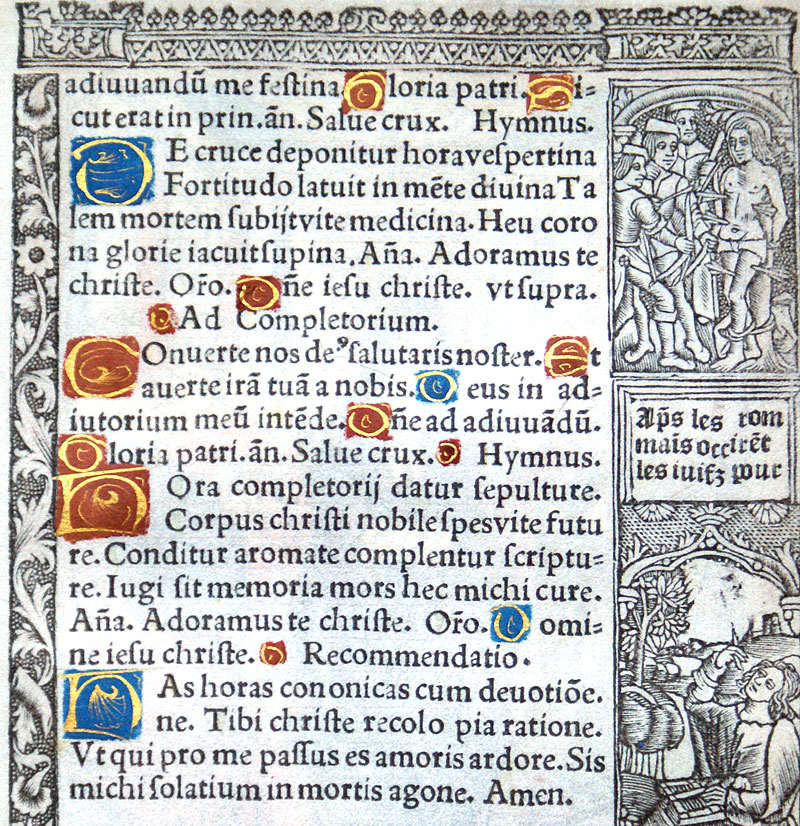 adiuuandū me feſtina Gloria patri. Si=
cut erat in prin. añ. Salue crux. Hymnus.
DE cruce deponitur hora veſpertina
Fortitudo latuit in mēte diuina Ta
lem mortem ſubijt vite medicina. Heu coro
na glorie iacuit ſupina. Aña. Adoramus te
chriſte. Oro. Dñe ieſu chriſte. vt ſupra.
Ad Completorium.
Conuerte nos deꝰ ſalutaris noſter. Et
auerte irā tuā a nobis. Deus in ad=
iutorium meū intēde. Dñe ad adiuuādū.
Gloria patri. añ. Salue crux. Hymnus.
HOra completorij datur ſepulture.
Corpus chriſti nobile ſpes vite futu
re. Conditur aromate complentur ſcriptu=
re. Iugi ſit memoria mors hec michi cure.
Aña. Adoramus te chriſte. Oro. Domi=
ne ieſu chriſte. Recommendatio.
HAs horas cononicas cum deuotiōe.
ne. Tibi chriſte recolo pia ratione.
Vt qui pro me paſſus es amoris ardore. Sis
michi ſolatium in mortis agone. Amen.
Ap̄s les rom
mais occirēt
les iuifz pour